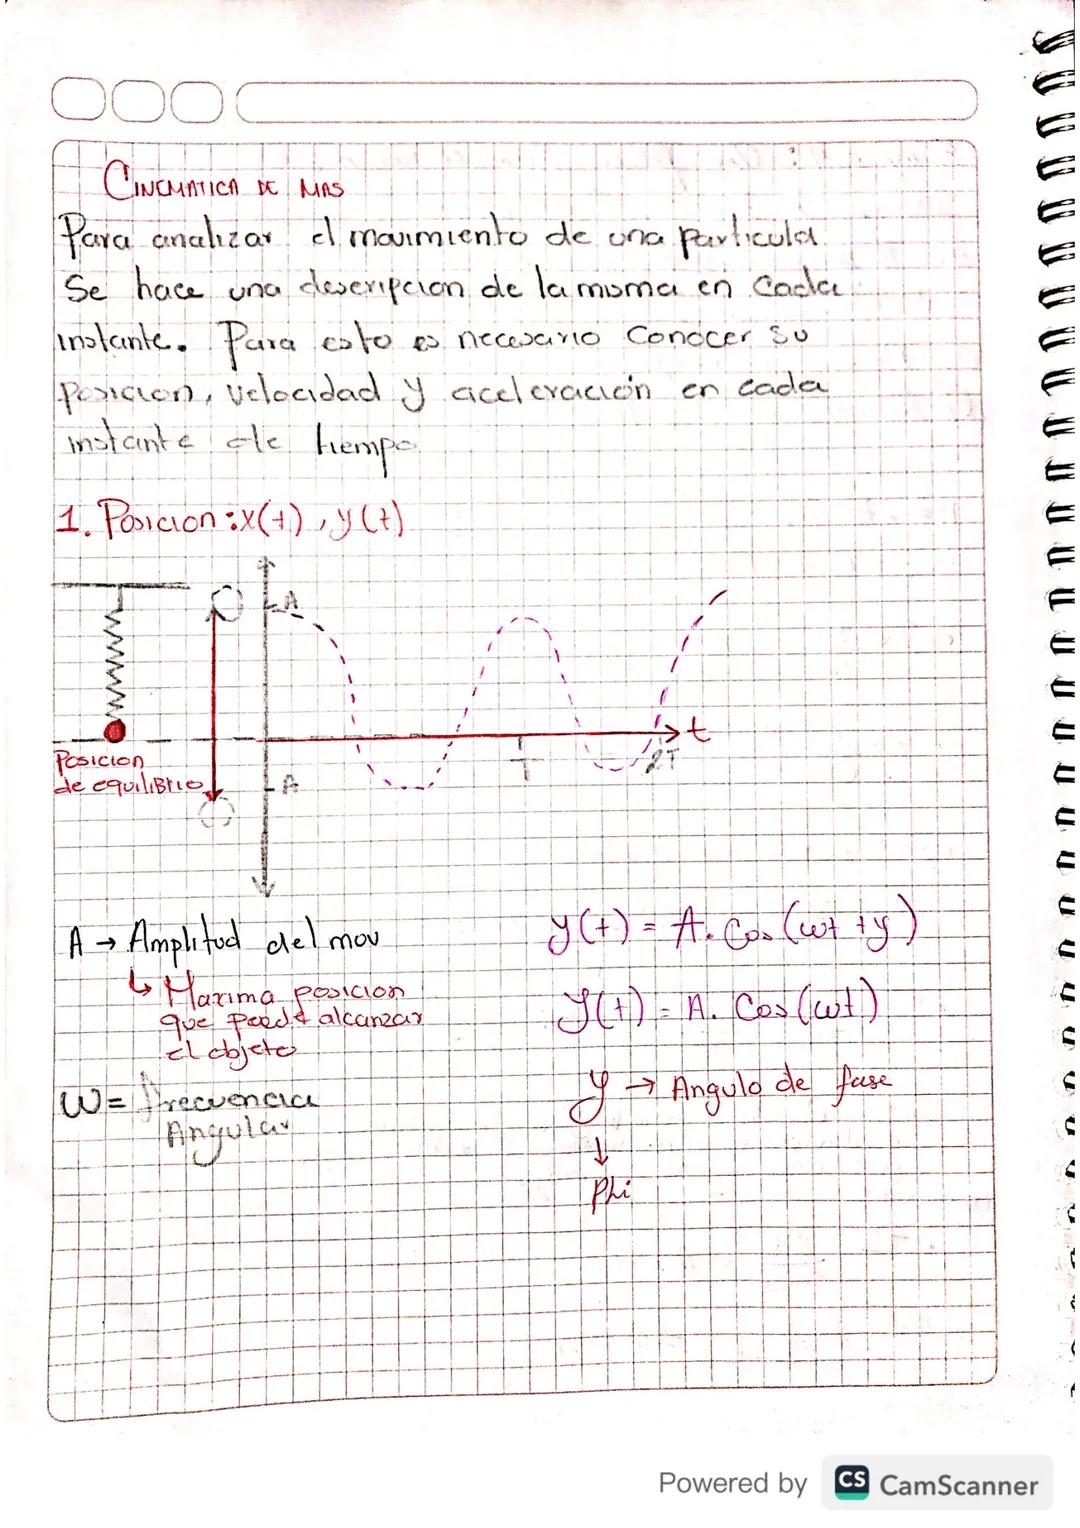 CINEMATICA DE MAS
Para analizar el movimiento de una particula.
Se hace una descripcion de la misma en cada
instante. Para esto es necesario conocer su
posicion, velocidad y aceleración en cada
instante de tiempo
1. Posicion: x(t), y(t)
A
t
Posicion
de equiliBrio
T
2T
-A
A → Amplitud del mov
↳ Maxima posicion
que puede alcanzar
el objeto
W= frecuencia
Angular
y(t) = A. Cos (wt + y)
y(t) = A. Cos (wt)
y → Angulo de fase
↓
Phi
Powered by CS CamScanner